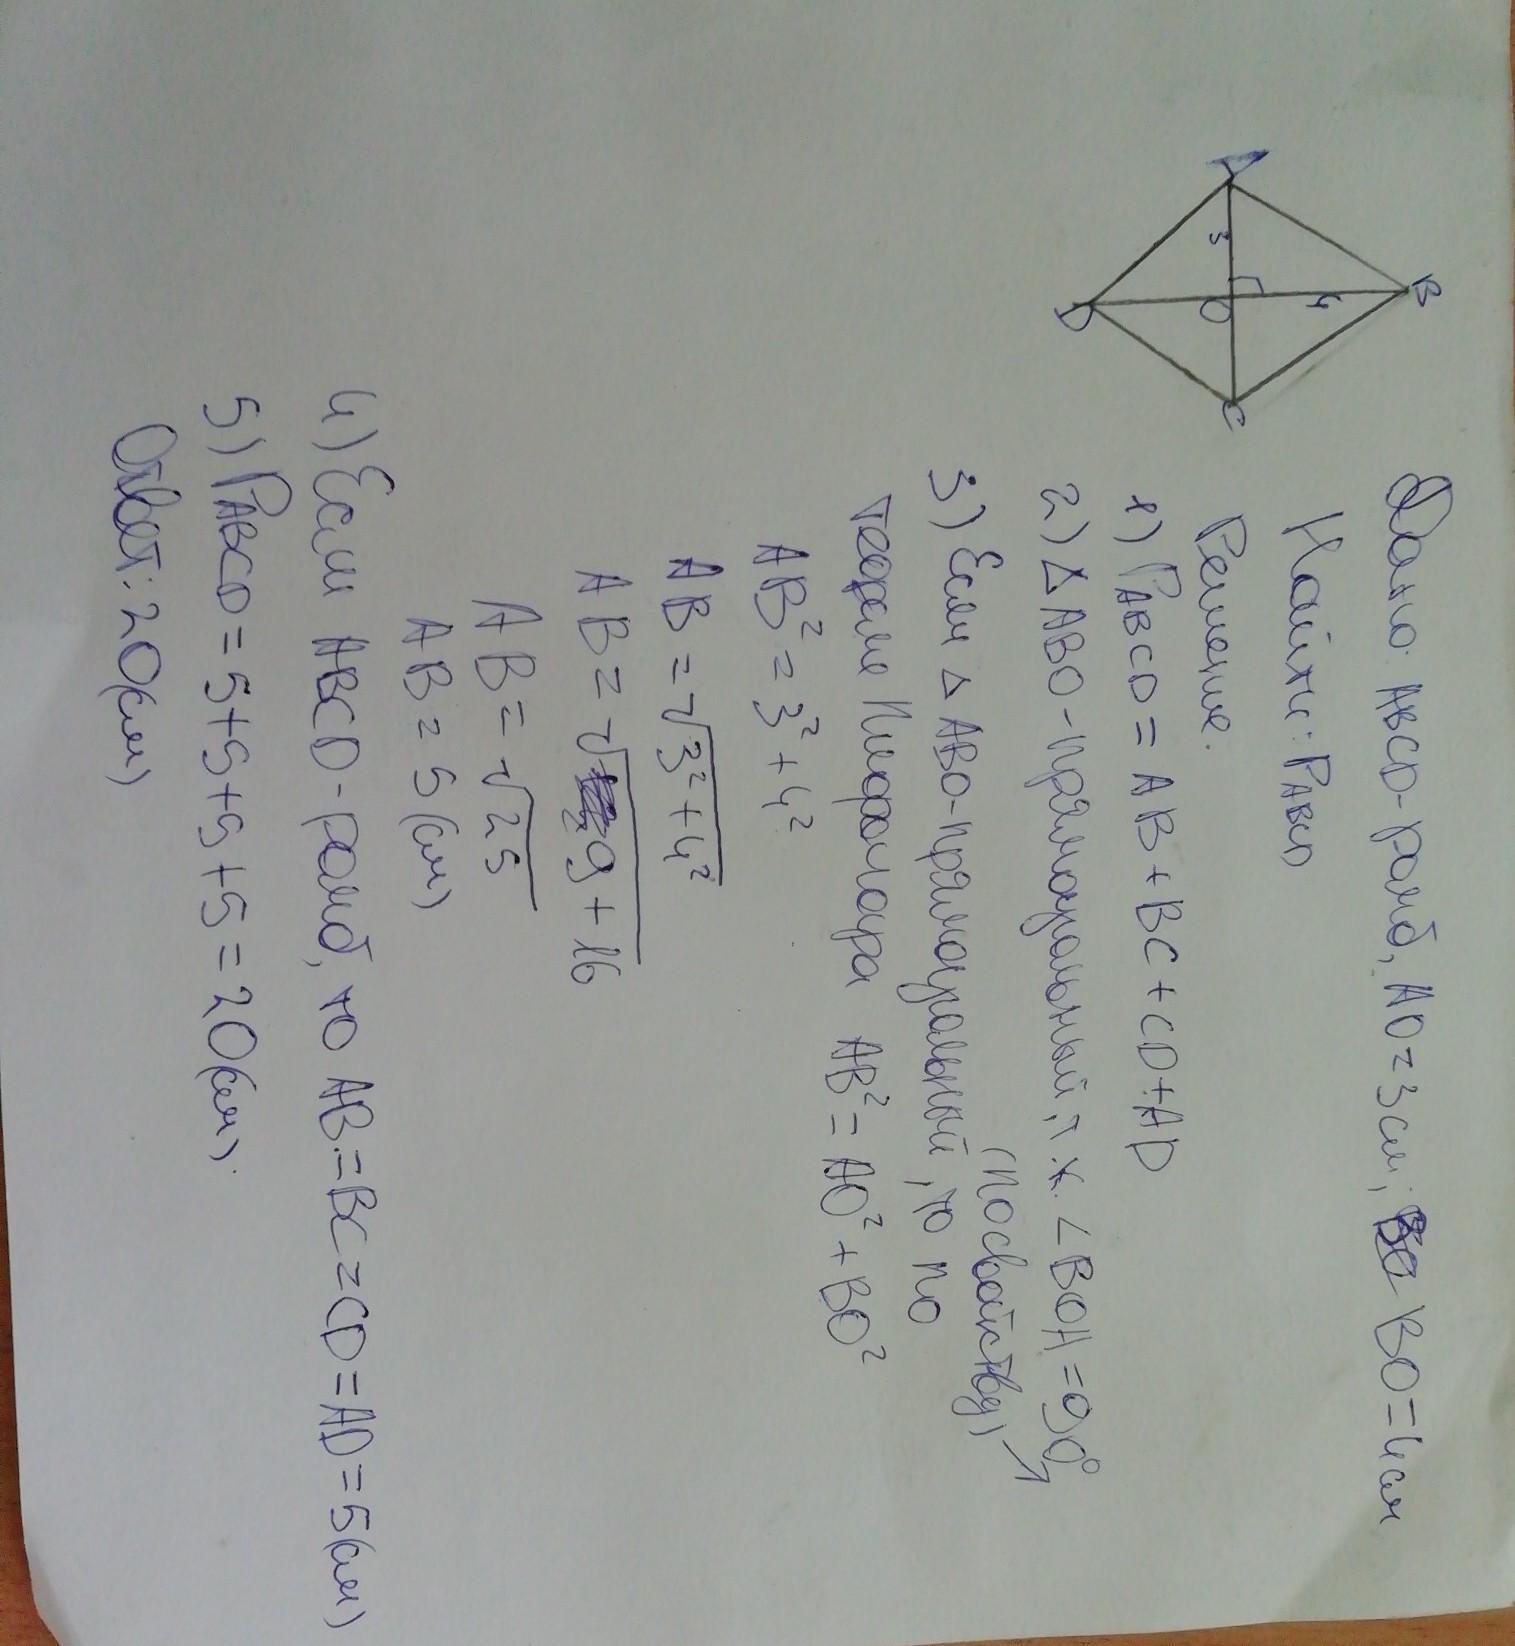 A
B
C
D
O
3
4
Дано: ABCD-ромб, AO=3см; BO=4см
Найти: PABCD
Решение:
1) PABCD = AB+BC+CD+AD
2) Δ ABO-прямоугольный, т.ж. <BOA=90°
(по свойству) ↗
3) Если Δ ABO-прямоугольный, то по
теореме Пифагора AB²=AO²+BO²
AB²=3²+4²
AB=√3²+4²
AB=√9+16
AB=√25
AB=5(см)
4) Если ABCD-ромб, то AB=BC=CD=AD=5(см)
5) PABCD=5+5+5+5=20(см).
Ответ: 20(см)